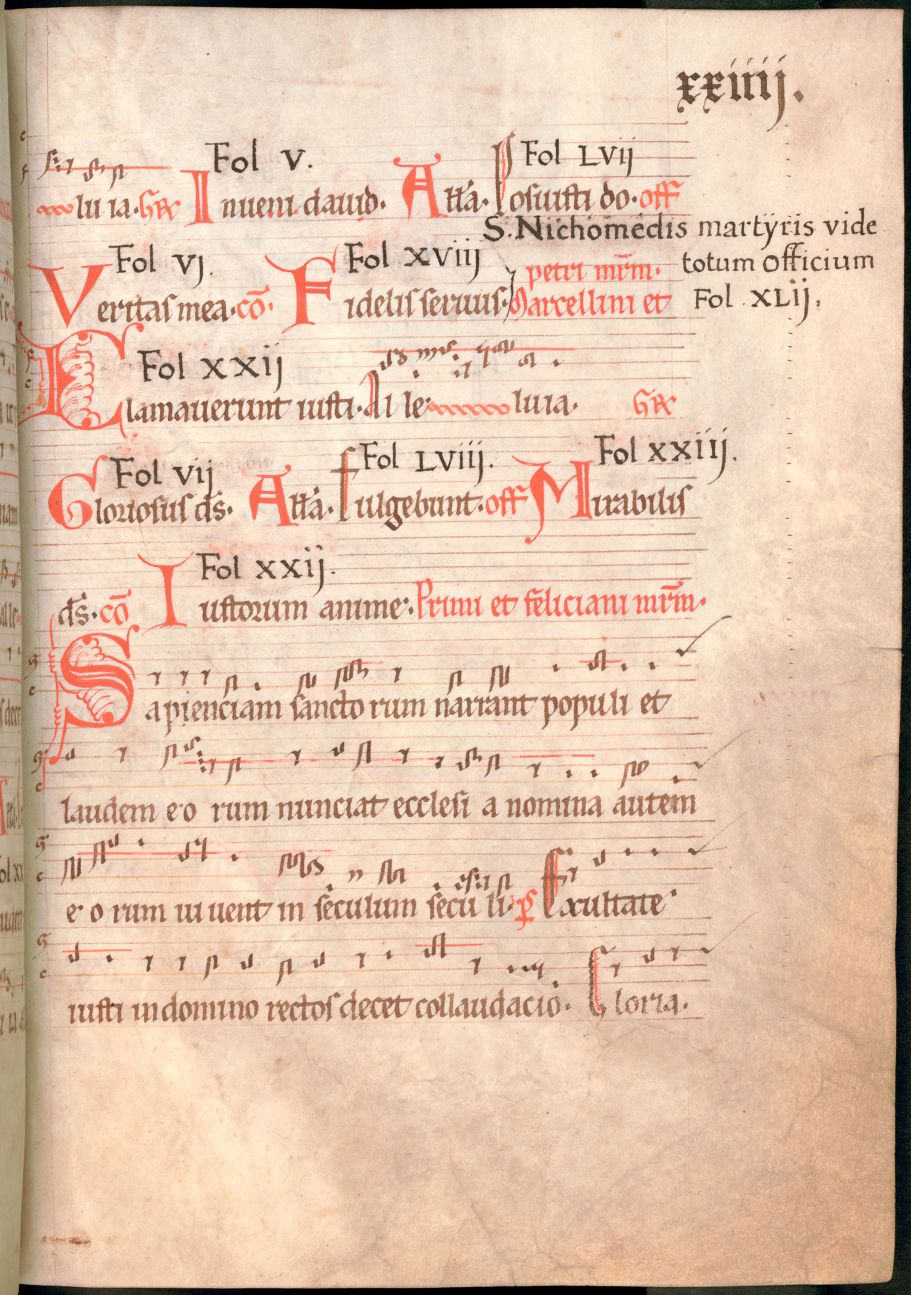 xxiiij.
Fol v. Fol LVij
luia. Gr Inueni dauid. Alla. Posuisti do. off
S. Nichomedis martyris vide
Fol vj. Fol xviij petri mrm. totum officium
Veritas mea. co Fidelis seruus. Marcellini et Fol XLij.
Fol xxij
Clamauerunt iusti. Al le luia. Gr
Fol vij Fol LViij. Fol xxiij.
Gloriosus ds. Alla. fulgebunt. off Mirabilis
Fol xxij.
ds. co Iustorum anime. Primi et feliciani mrm.
Sapienciam sancto rum narrant populi et
laudem e o rum nunciat ecclesi a nomina autem
e o rum uiuent in seculum secu li. ps Exultate
iusti in domino rectos decet collaudacio. Gloria.